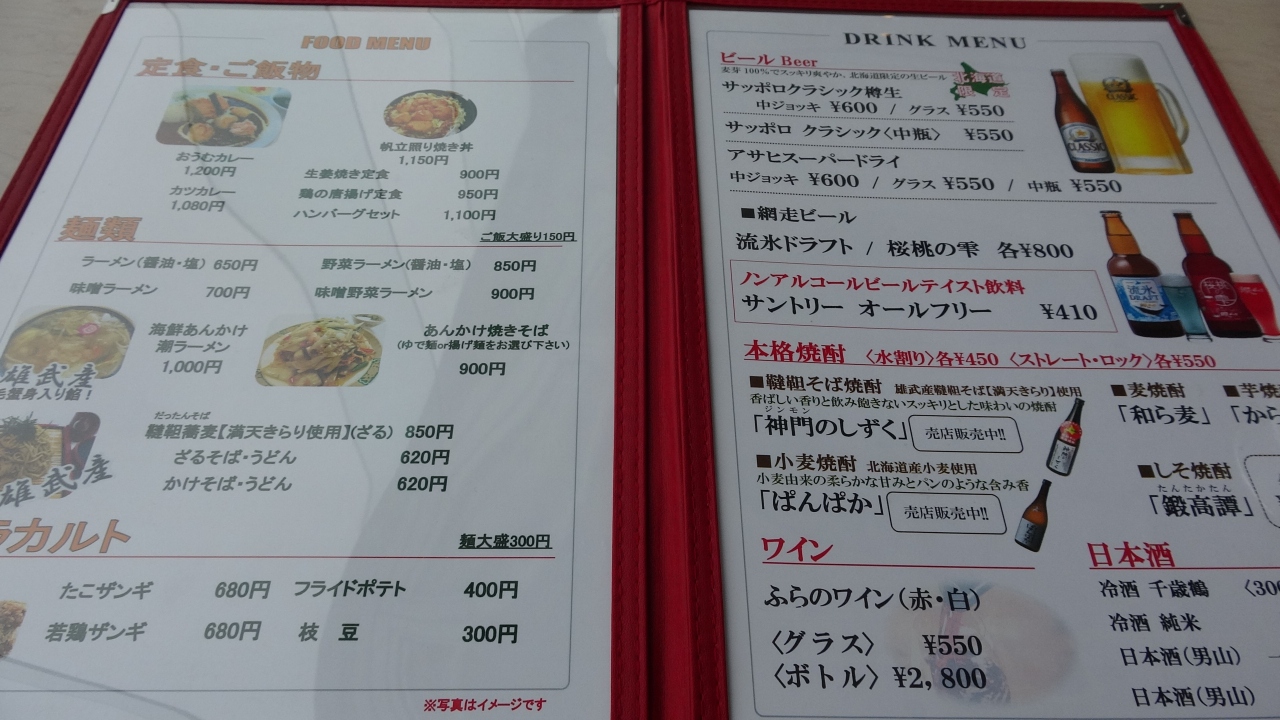 FOOD MENU
定食・ご飯物
おうむカレー
1,200円
帆立照り焼き丼
1,150円
カツカレー
1,080円
生姜焼き定食 900円
鶏の唐揚げ定食 950円
ハンバーグセット 1,100円
麺類
ご飯大盛り150円
ラーメン(醤油・塩) 650円 野菜ラーメン(醤油・塩) 850円
味噌ラーメン 700円 味噌野菜ラーメン 900円
海鮮あんかけ
潮ラーメン
1,000円
あんかけ焼きそば
(ゆで麺or揚げ麺をお選び下さい)
900円
雄武産
毛蟹身入り餡！
だったんそば
韃靼蕎麦【満天きらり使用】(ざる) 850円
ざるそば・うどん 620円
かけそば・うどん 620円
雄武産
ラカルト
麺大盛300円
たこザンギ 680円 フライドポテト 400円
若鶏ザンギ 680円 枝 豆 300円
※写真はイメージです
DRINK MENU
ビール Beer
麦芽100%でスッキリ爽やか。北海道限定の生ビール
北海道
限定
サッポロクラシック樽生
中ジョッキ ¥600 / グラス ¥550
サッポロ クラシック〈中瓶〉 ¥550
アサヒスーパードライ
中ジョッキ ¥600 / グラス ¥550 / 中瓶 ¥550
CLASSIC
CLASSIC
■網走ビール
流氷ドラフト / 桜桃の雫 各¥800
流氷
DRAFT
桜桃
雫
ノンアルコールビールテイスト飲料
サントリー オールフリー ¥410
本格焼酎 〈水割り〉各¥450 〈ストレート・ロック〉各¥550
■韃靼そば焼酎 雄武産韃靼そば【満天きらり】使用
香ばしい香りと飲み飽きないスッキリとした味わいの焼酎
ジンモン
「神門のしずく」 売店販売中!!
■小麦焼酎 北海道産小麦使用
小麦由来の柔らかな甘みとパンのような含み香
「ぱんぱか」 売店販売中!!
■麦焼酎
「和ら麦」
■芋焼
「から
■しそ焼酎
たんたかたん
「鍛高譚」
ワイン
ふらのワイン(赤・白)
〈グラス〉 ¥550
〈ボトル〉 ¥2,800
日本酒
冷酒 千歳鶴 〈300
冷酒 純米
日本酒(男山)
日本酒(男山)